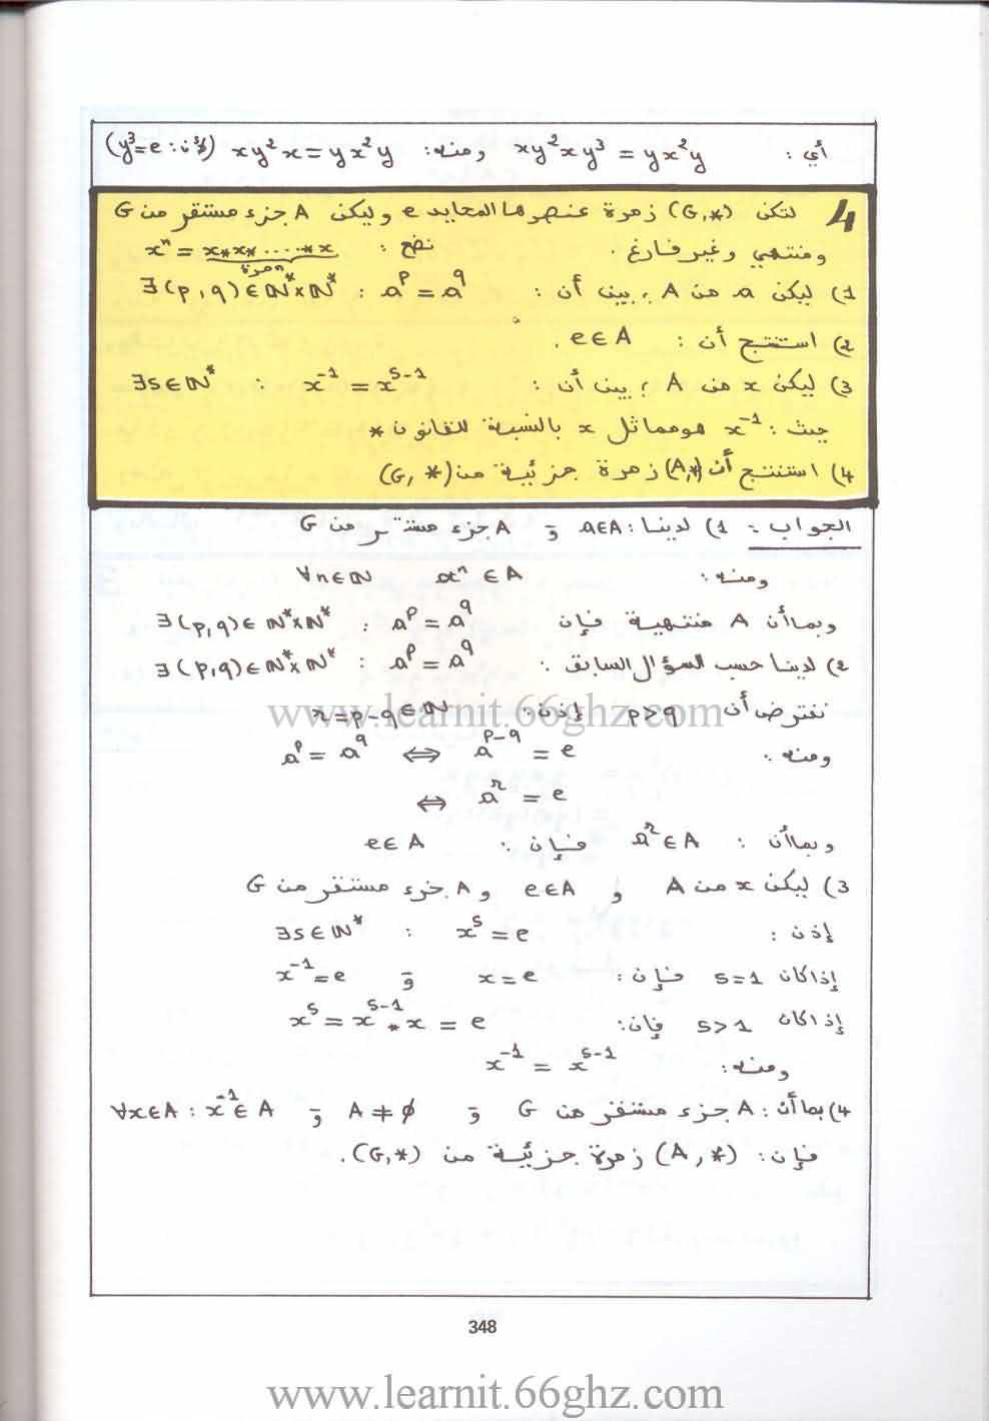 أي : xy²xy³ = yx²y ومنه: xy²x = yx²y (لأن : y³=e)
4 لتكن (G,*) زمرة عنصرها المحايد e وليكن A جزء مستقر من G
ومنتهي وغير فارغ . نضع : xⁿ = x*x*.....*x
n مرة
1) ليكن a من A ، بين أن : ∃(p,q)∈ℕ*×ℕ* : aᵖ = a^q
2) استنتج أن : e∈A .
3) ليكن x من A ، بين أن : ∃s∈ℕ* : x⁻¹ = x^(s-1)
حيث : x⁻¹ هو مماثل x بالنسبة للقانون *
4) استنتج أن (A,*) زمرة جزئية من (G,*)
الجواب : 1) لدينا : a∈A و A جزء مستقر من G
ومنه : ∀n∈ℕ aⁿ ∈ A
وبما أن A منتهية فإن ∃(p,q)∈ℕ*×ℕ* : aᵖ = a^q
2) لدينا حسب السؤال السابق : ∃(p,q)∈ℕ*×ℕ* : aᵖ = a^q
نفترض أن p>q إذن: r=p-q∈ℕ
www.learnit.66ghz.com
ومنه : aᵖ = a^q ⇔ a^(p-q) = e
⇔ aʳ = e
وبما أن : aʳ∈A فإن : e∈A
3) ليكن x من A و e∈A و A جزء مستقر من G
إذن : ∃s∈ℕ* : xˢ = e
إذا كان s=1 فإن : x=e و x⁻¹=e
إذا كان s>1 فإن: xˢ = x^(s-1) * x = e
ومنه : x⁻¹ = x^(s-1)
4) بما أن : A جزء مستقر من G و A≠∅ و ∀x∈A : x⁻¹∈A
فإن : (A,*) زمرة جزئية من (G,*).
348
www.learnit.66ghz.com